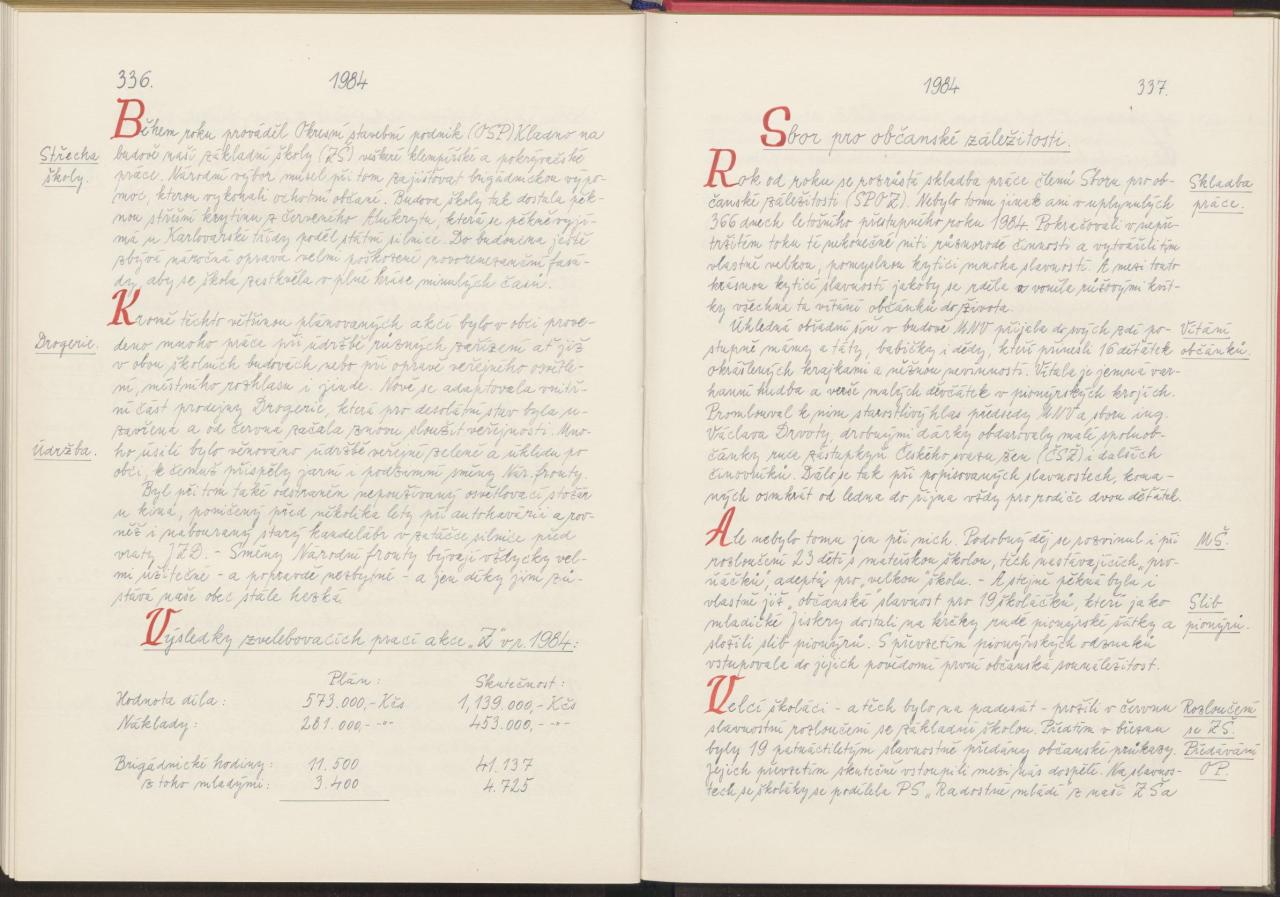 336.
1984
Během roku prováděl Okresní stavební podnik (OSP) Kladno na
Střecha
budově naší základní školy (ZŠ) veškeré klempířské a pokrývačské
školy.
práce. Národní výbor musel při tom zajišťovat brigádnickou výpo-
moc, kterou vykonali ochotní občané. Budova školy tak dostala pěk-
nou střešní krytinu z červeného Alukrytu, která se pěkně vyjí-
má u Karlovarské třídy podél státní silnice. Do budoucna ještě
zbývá náročná oprava velmi poškozené novorenezanční fasá-
dy, aby se škola zaskvěla v plné kráse minulých časů.
Kromě těchto většinou plánovaných akcí bylo v obci prove-
Drogerie.
deno mnoho práce při údržbě různých zařízení ať již
v obou školních budovách nebo při opravě veřejného osvětle-
ní, místního rozhlasu i jinde. Nově se adaptovala vnitř-
ní část prodejny Drogerie, která pro desolátní stav byla u-
zavřena a od června začala znovu sloužit veřejnosti. Mno-
Údržba.
ho úsilí bylo věnováno údržbě veřejné zeleně a úklidu po
obci, k čemuž přispěly jarní i podzimní směny Nár. fronty.
Byl při tom také odstraněn nepoužívaný osvětlovací stožár
u kina, poničený před několika lety při autohavárii a rov-
něž i nabouraný starý kandelábr v zatáčce silnice před
vraty JZD. - Směny Národní fronty bývají vždycky vel-
mi užitečné - a popravdě nezbytné - a jen díky jim zů-
stává naše obec stále hezká.
Výsledky zvelebovacích prací akce „Z" v r. 1984:
Plán:
Skutečnost:
Hodnota díla:
573.000,- Kčs
1,139.000,- Kčs
Náklady:
281.000,- -"-
453.000,- -"-
Brigádnické hodiny:
11.500
41.137
z toho mladými:
3.400
4.725
1984
337.
Sbor pro občanské záležitosti.
Rok od roku se rozrůstá skladba práce členů Sboru pro ob-
Skladba
čanské záležitosti (SPOZ). Nebylo tomu jinak ani v uplynulých
práce.
366 dnech letošního přestupného roku 1984. Pokračovali v nepře-
tržitém toku té nekonečné niti různorodé činnosti a vytvářeli tím
vlastně velkou, pomyslnou kytici mnoha slavností. A mezi touto
krásnou kyticí slavností jakoby se rděla a voněla růžovými kvít-
ky všechna ta vítání občánků do života.
Úhledná obřadní síň v budově MNV přijala do svých zdí po-
Vítání
stupně mámy a táty, babičky i dědy, kteří přinesli 16 děťátek
občánků.
okrášlených krajkami a něžnou nevinností. Vítala je jemná var-
hanní hudba a verše malých děvčátek v pionýrských krojích.
Promlouval k nim starostlivý hlas předsedy MNV a sboru ing.
Václava Drvoty, drobnými dárky obdarovaly malé spoluob-
čánky ruce zástupkyň Českého svazu žen (ČSŽ) i dalších
činovníků. Dálo se tak při popisovaných slavnostech, kona-
ných osmkrát od ledna do října vždy pro rodiče dvou děťátek.
Ale nebylo tomu jen při nich. Podobný děj se rozvinul i při
MŠ.
rozloučení 23 dětí s mateřskou školou, těch nastávajících „prv-
ňáčků", adeptů pro „velkou" školu. - A stejně pěkná byla i
vlastně již „občanská" slavnost pro 19 školáčků, kteří jako
Slib
mladičké Jiskry dostali na krčky rudé pionýrské šátky a
pionýrů.
složili slib pionýrů. S převzetím pionýrských odznaků
vstupovala do jejich povědomí první občanská sounáležitost.
Velcí školáci - a těch bylo na padesát - prožili v červnu
Rozloučení
slavnostní rozloučení se základní školou. Předtím v březnu
se ZŠ.
byly 19 patnáctiletým slavnostně předány občanské průkazy.
Předávání
Jejich převzetím skutečně vstoupili mezi nás dospělé. Na slavnos-
OP.
tech se školáky se podílela PS „Radostné mládí" z naší ZŠ a